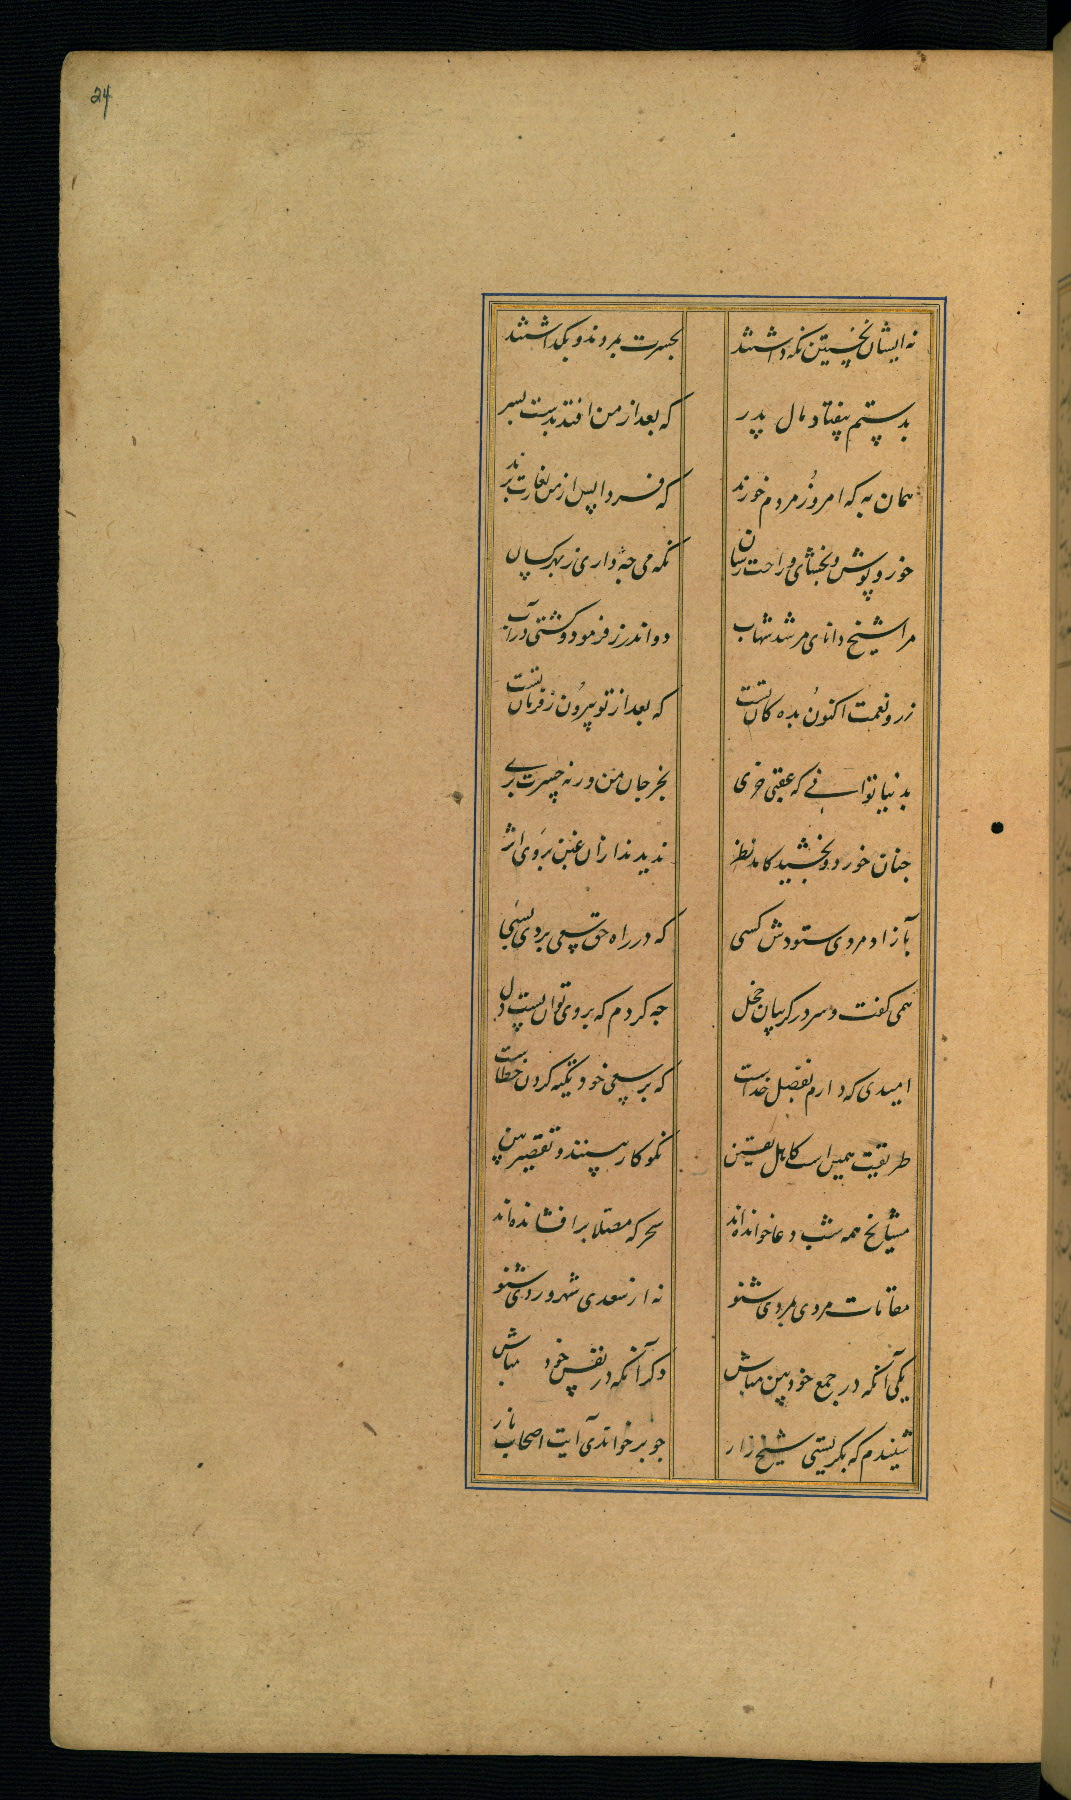 24
نه ایشان نخستین نگه داشتند بحسرت بمردند و بگذاشتند
بدستم بیفتاد مال پدر که بعد از من افتد بدست پسر
همان به که امروز مردم خورند که فردا پس از من بغارت برند
خور و پوش و بخشای و راحت رسان نگه می چه داری ز بهر کسان
مرا شیخ دانای مرشد شهاب دو اندرز فرمود و کشتی در آب
زر و نعمت اکنون بده کان تست که بعد از تو بیرون ز فرمان تست
بدنیا توانی که عقبی خری بخر جان من ورنه حسرت بری
چنان خورد و بخشید کاهل نظر ندیدند از ان عین بروی اثر
بآزاد مردی ستودش کسی که در راه حق سعی بردی بسی
همی گفت و سر در گریبان خجل چه کردم که بروی توان بست دل
امیدی که دارم بفضل خداست که بر سعی خود تکیه کردن خطاست
طریقت همین است کاهل یقین نکوکار بینند و تقصیر بین
مشایخ همه شب دعا خوانده اند سحرگه مصلا برافشانده اند
مقامات مردی بمردی شنو نه از سعدی شهروردی شنو
یکی آنکه در جمع خود بین مباش دگر آنکه در نفس خود مباش
شنیدم که بگریستی شیخ زار چو بر خواندی آیت اصحاب نار